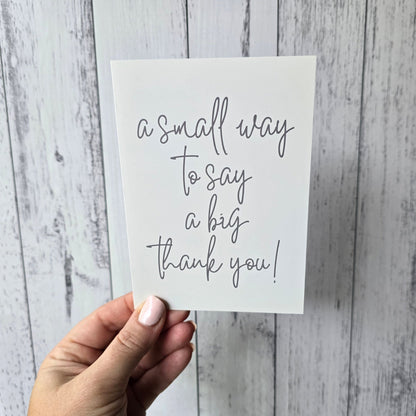 a small way
to say
a big
thank you!